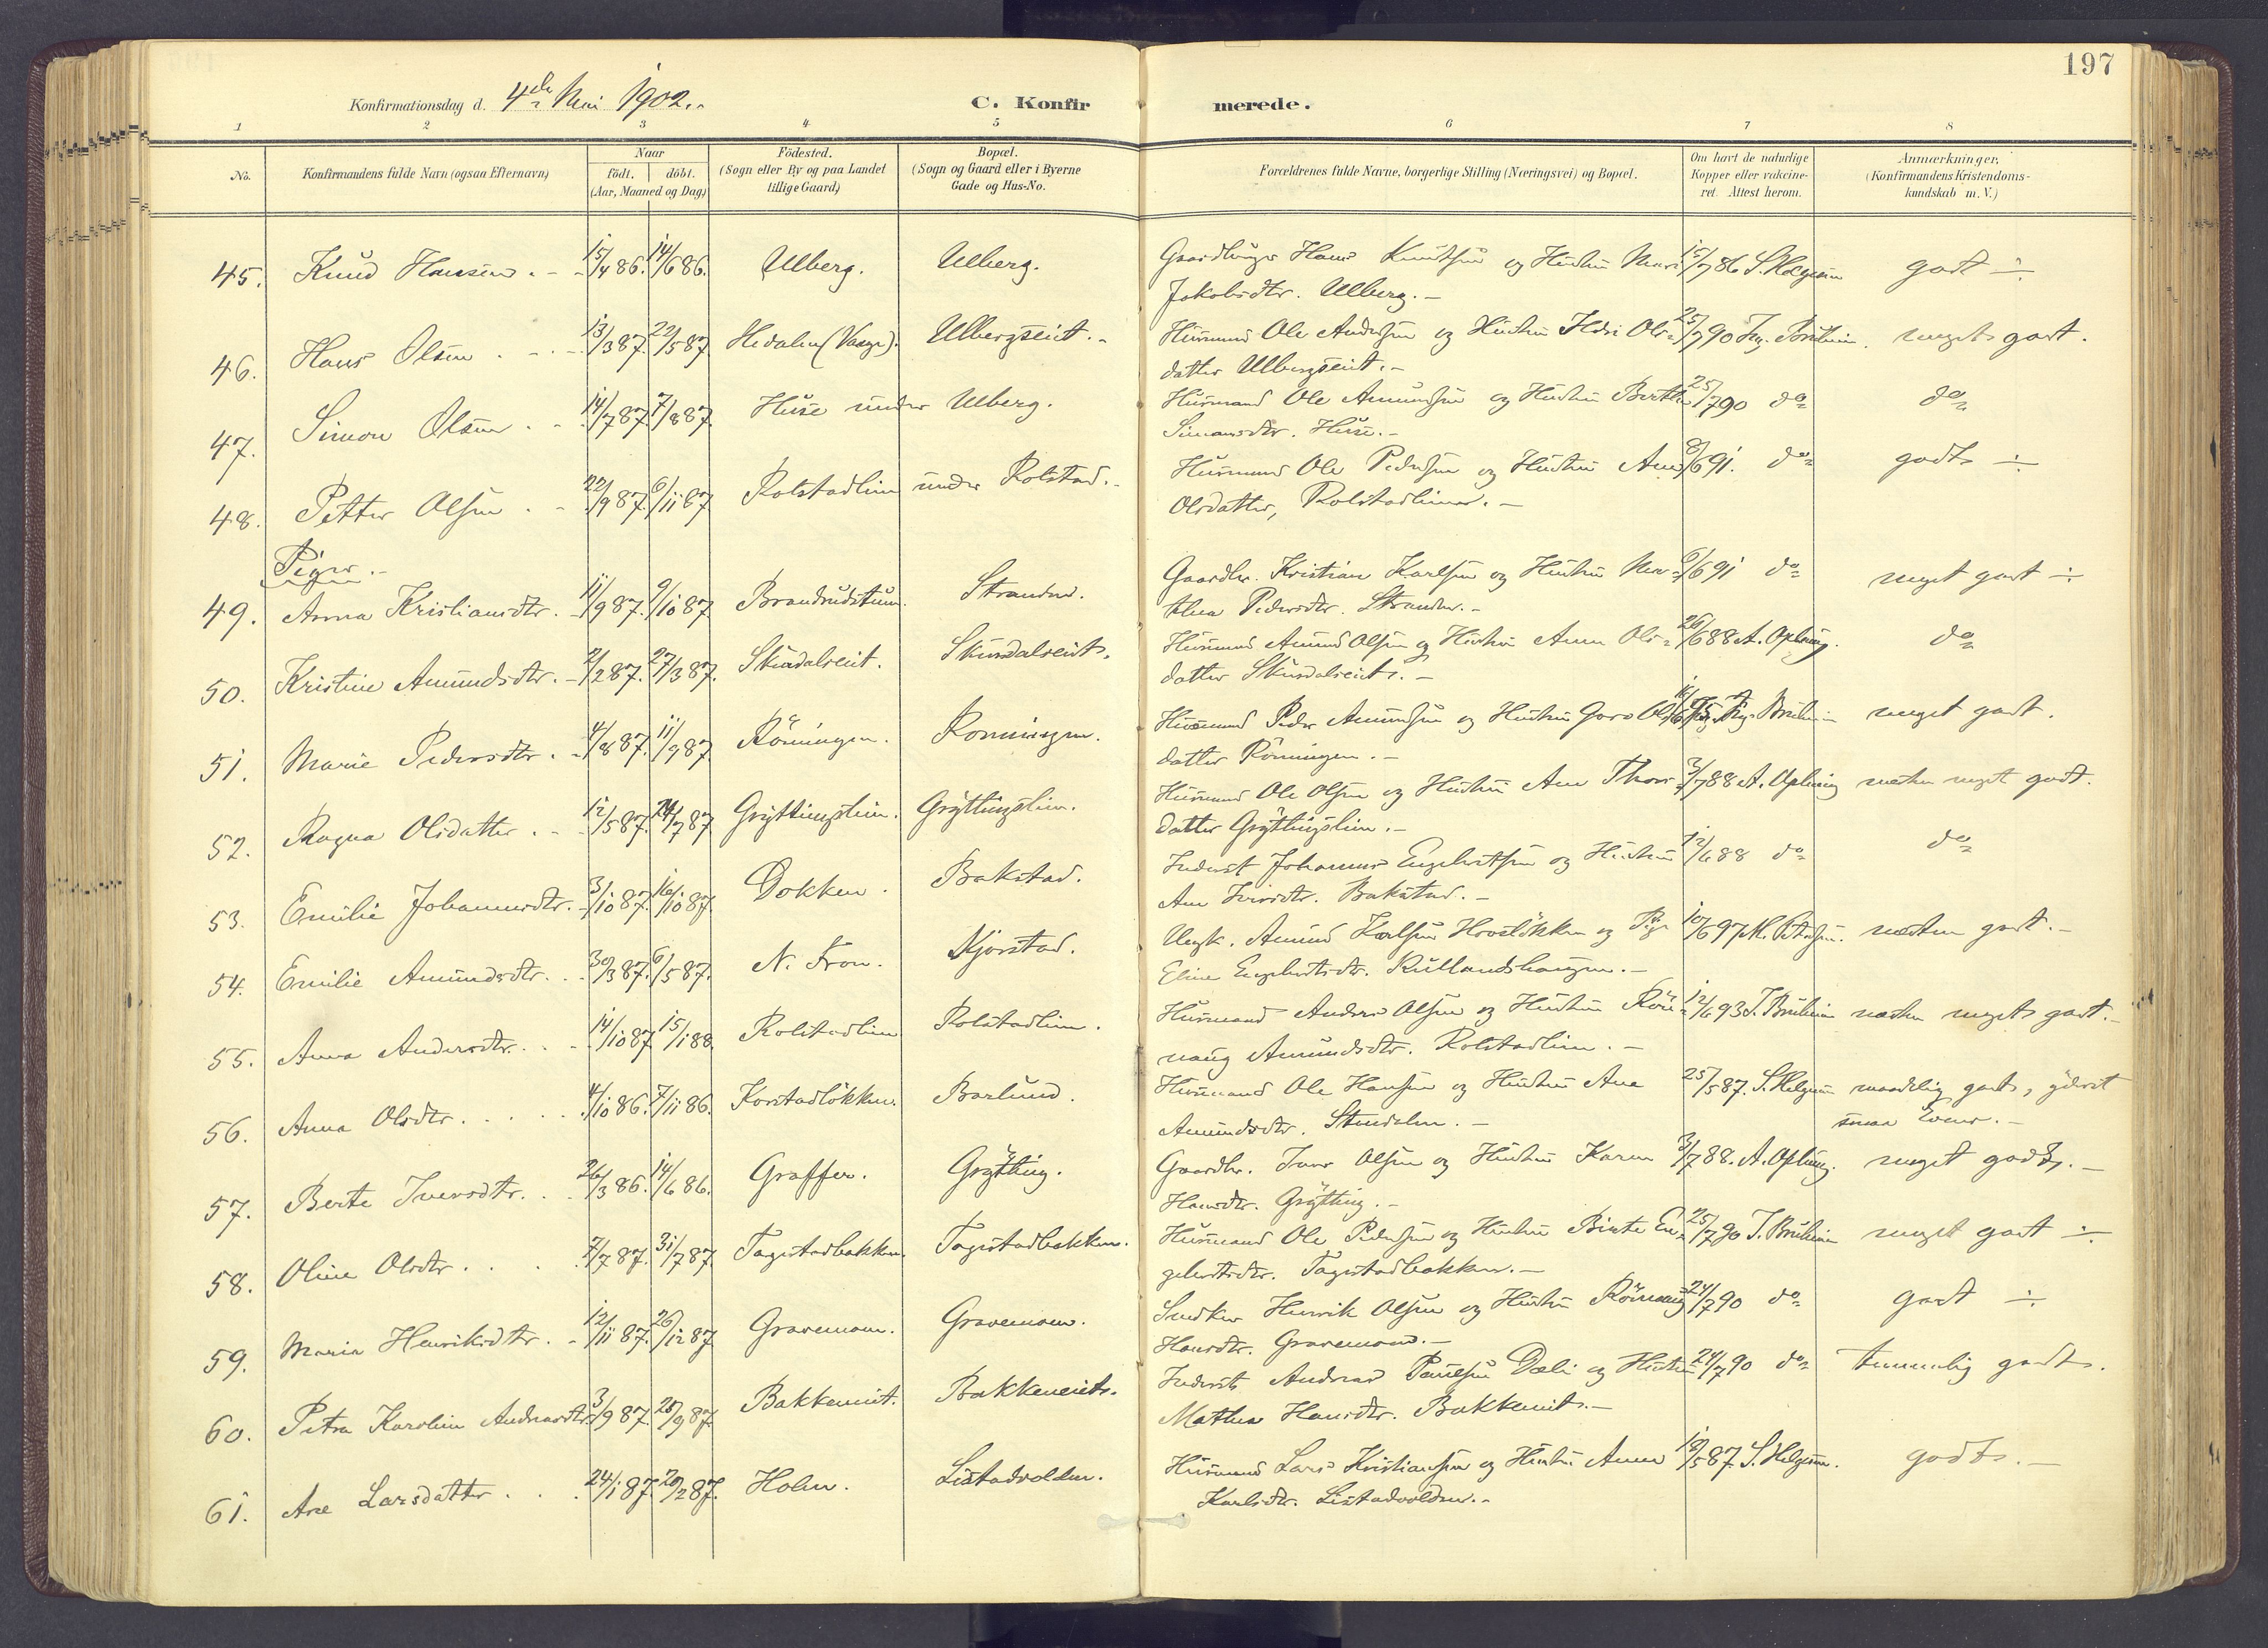 197
Konfirmationsdag d. 4de Mai 1902.
C. Konfirmerede.
1 2 3 4 5 6 7 8
No.
Konfirmandens fulde Navn (ogsaa Efternavn)
Naar
födt. döbt.
(Aar, Maaned og Dag)
Födested.
(Sogn eller By og paa Landet
tillige Gaard)
Bopæl.
(Sogn og Gaard eller i Byerne
Gade og Hus-No.
Forældrenes fulde Navne, borgerlige Stilling (Næringsvei) og Bopæl.
Om havt de naturlige
Kopper eller vakcine-
ret. Attest herom.
Anmærkninger,
(Konfirmandens Kristendoms-
kundskab m. V.)
45. Knud Hansen. 15/4 86. 14/6 86. Ulberg. Ulberg. Gaardbruger Hans Knutsen og Hustru Mari 15/7 86 S. Helgesen godt ÷
Jakobsdtr. Ulberg.
46. Hans Olsen 13/3 87. 22/5 87. Hedalen (Vaage). Ulbergseiet. Husmand Ole Andersen og Hustru Ols- 25/7 90 Bruheim. meget godt.
datter Ulbergseiet.
47. Simon Olsen 14/7 87. 7/8 87. Huse under Ulberg. Husmand Ole Amundsen og Hustru Berthe 25/7 90 do do
Simonsdtr. Huse.
48. Petter Olsen 22/9 87. 6/11 87. Rolstadlien under Rolstad. Husmand Ole Pedersen og Hustru Ane 8/6 91. do godt ÷
Olsdatter, Rolstadlien.
Piger.
49. Anna Kristiansdtr. 11/9 87. 9/10 87. Brandrudstuen. Stranden. Gaardbr. Kristian Karlsen og Hustru Mar- 6/6 91 do meget godt ÷
thea Pedersdtr. Stranden.
50. Kristine Amundsdtr. 2/2 87. 27/3 87. Skurdalseiet. Skurdalseiet. Husmand Amund Olsen og Hustru Anne Ols- 26/6 88 A. Opheim. do
datter Skurdalseiet.
51. Marie Pedersdtr. 4/8 87. 11/9 87. Rönningen. Rönningen. Husmand Peder Amundsen og Hustru Goro Ols- Bruheim meget godt.
datter Rönningen.
52. Ragna Olsdatter 12/5 87. 24/7 87. Gryttingslien. Gryttingslien. Husmand Ole Olsen og Hustru Ane Thors- 3/7 88 A. Opheim næsten meget godt.
datter Gryttingslien.
53. Emilie Johannesdtr. 3/10 87. 16/10 87. Dokken. Bakstad. Inderst Johannes Engebretsen og Hustru 12/6 88 do do
Ane Iversdtr. Bakstad.
54. Emilie Amundsdtr. 30/3 87. 6/5 87. N. Fron. Kjorstad. Ungk. Amund Karlsen Hovslökken og Pige 10/6 97 M. næsten godt.
Eline Engebretsdtr. Rullandshaugen.
55. Anna Andersdtr. 14/10 87 15/1 88. Rolstadlien Rolstadlien. Husmand Anders Olsen og Hustru Rön- 12/6 93 T. Bruheim næsten meget godt.
naug Amundsdtr. Rolstadlien.
56. Anna Olsdtr. 4/10 86. 7/11 86. Korstadlökken. Barlund. Husmand Ole Hansen og Hustru Ane 25/5 87. S. Helgesen maadelig godt, yderst
Amundsdtr. Stendalen. smaa Evner.
57. Berte Iversdtr. 26/3 86. 14/6 86. Graffer. Grytting. Gaardbr. Iver Olsen og Hustru Karen 3/7 88. A. Opheim. meget godt.
Hansdtr. Grytting.
58. Oline Olsdtr. 7/7 87. 31/7 87. Tagestadbakken. Tagestadbakken. Husmand Ole Pedersen og Hustru Birte En- 25/7 90 T. Bruheim meget godt ÷
gebretsdtr. Tagestadbakken.
59. Maria Henriksdtr. 12/11 87. 26/12 87 Gravemoen. Gravemoen. Snedker Henrik Olsen og Hustru Rönnaug 24/7 90 do godt ÷
Hansdtr. Gravemoen.
60. Petra Karoline Andreasdtr. 3/9 87. 28/9 87. Bakkeneiet. Bakkeneiet. Inderst Andreas Paulsen Dæli og Hustru 24/7 90 do temmelig godt.
Mathea Hansdtr. Bakkeneiet.
61. Ane Larsdatter 24/1 87. 20/2 87. Holen. Listadvolden. Husmand Lars Kristiansen og Hustru Anne 19/5 87. S. Helgesen. godt.
Karlsdtr. Listadvolden.